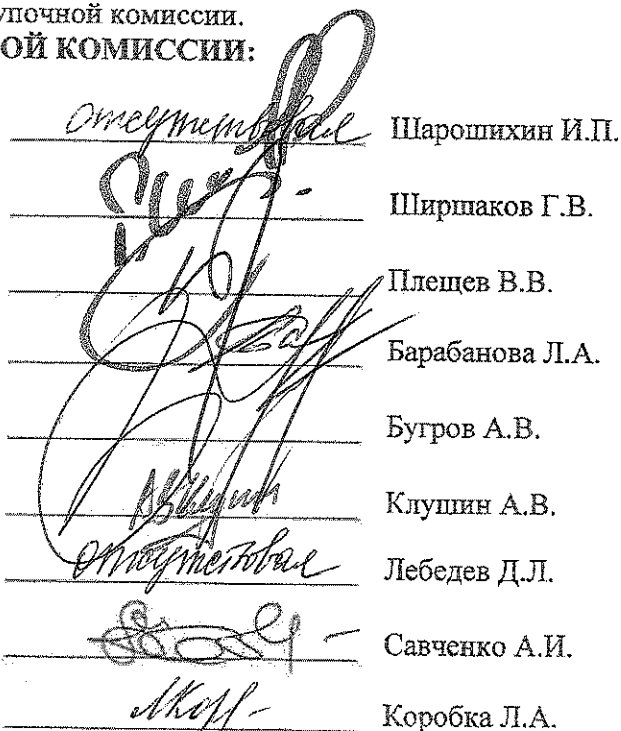 упочной комиссии.
ОЙ КОМИССИИ:
отсутствовал Шарошихин И.П.
Ширшаков Г.В.
Плещев В.В.
Барабанова Л.А.
Бугров А.В.
Клушин А.В.
отсутствовал Лебедев Д.Л.
Савченко А.И.
Коробка Л.А.